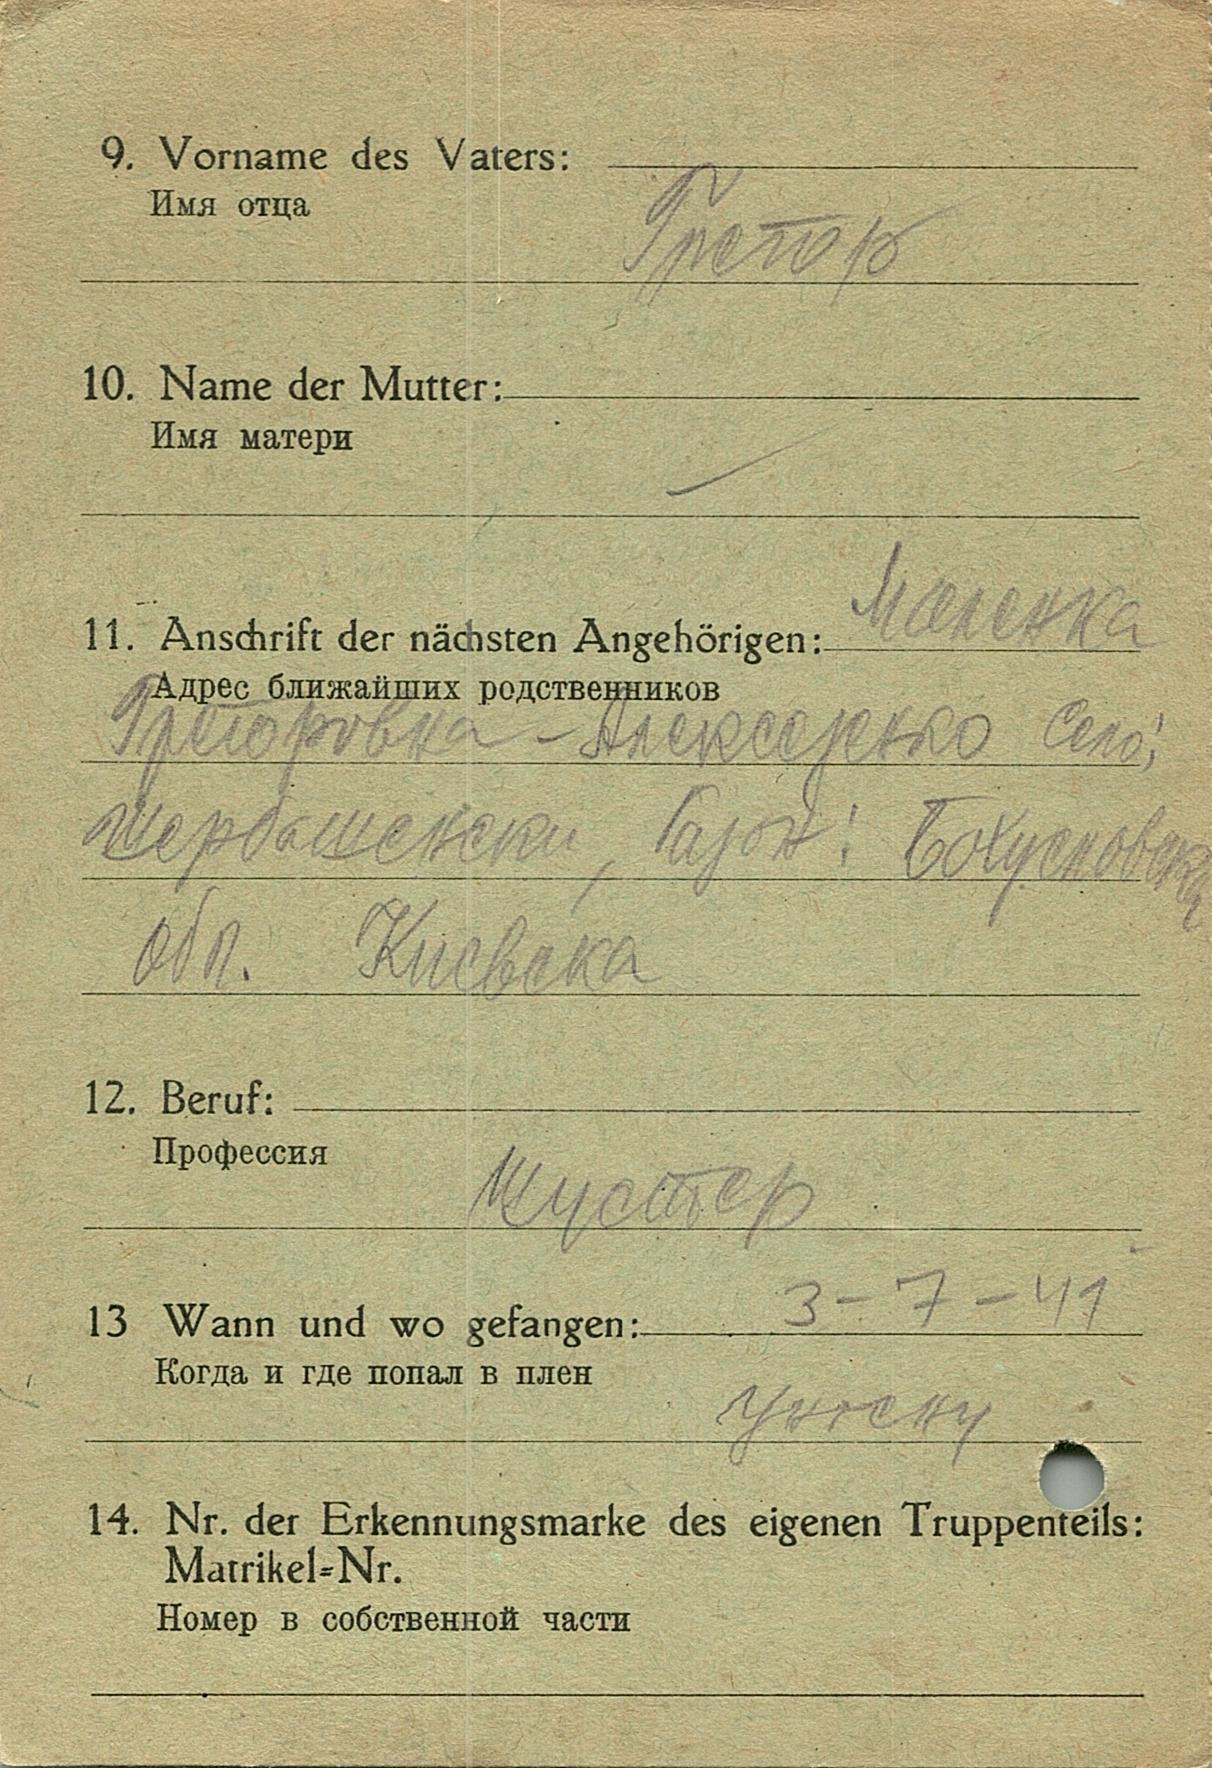 9. Vorname des Vaters:
Имя отца
Грегор
10. Name der Mutter:
Имя матери
Маленка
11. Anschrift der nächsten Angehörigen:
Адрес ближайших родственников
Грегоровна - Алексејенко Село;
Рајон: Бохусловски
Обл. Киевска
12. Beruf:
Профессия
Шустер
3-7-41
13 Wann und wo gefangen:
Когда и где попал в плен
14. Nr. der Erkennungsmarke des eigenen Truppenteils:
Matrikel=Nr.
Номер в собственной части